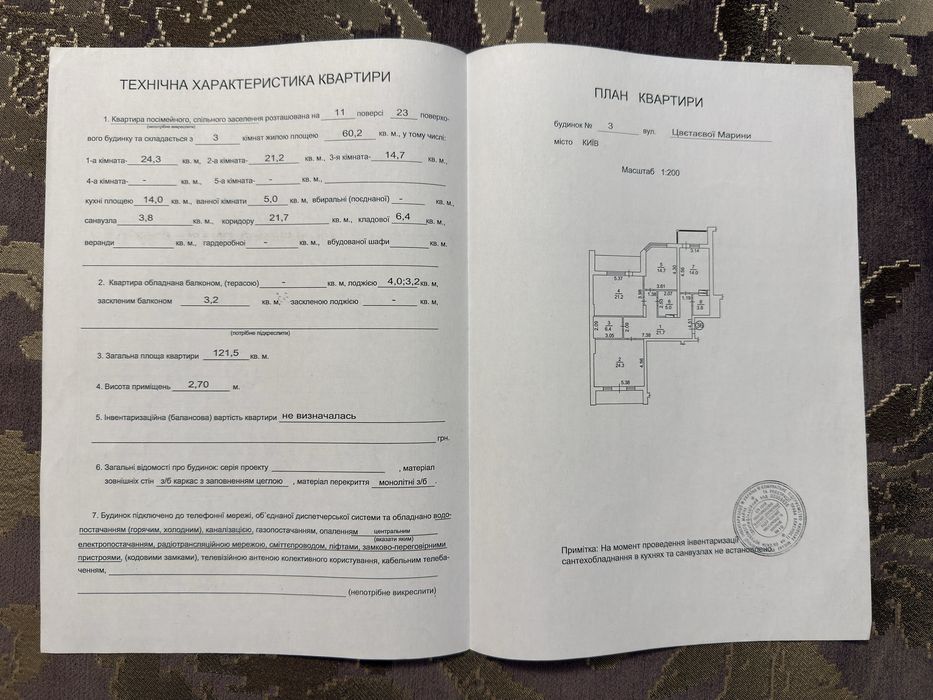 ТЕХНІЧНА ХАРАКТЕРИСТИКА КВАРТИРИ
1. Квартира посімейного, спільного заселення розташована на 11 поверсі 23 поверхо-
(непотрібне викреслити)
вого будинку та складається з 3 кімнат жилою площею 60,2 кв. м, у тому числі:
1-а кімната- 24,3 кв. м, 2-а кімната- 21,2 кв. м, 3-я кімната- 14,7 кв. м,
4-а кімната- - кв. м, 5-а кімната- - кв. м,
кухні площею 14,0 кв. м, ванної кімнати 5,0 кв. м, вбиральні (поєднаної) - кв. м,
санвузла 3,8 кв. м, коридору 21,7 кв. м, кладової 6,4 кв. м,
веранди кв. м, гардеробної - кв. м, вбудованої шафи кв. м.
2. Квартира обладнана балконом, (терасою) - кв. м, лоджією 4,0;3,2 кв. м,
заскленим балконом 3,2 кв. м, заскленою лоджією - кв. м,
(потрібне підкреслити)
3. Загальна площа квартири 121,5 кв. м.
4. Висота приміщень 2,70 м.
5. Інвентаризаційна (балансова) вартість квартири не визначалась
грн.
6. Загальні відомості про будинок: серія проекту , матеріал
зовнішніх стін з/б каркас з заповненням цеглою , матеріал перекриття монолітні з/б .
7. Будинок підключено до телефонної мережі, об'єднаної диспетчерської системи та обладнано водо-
постачанням (горячим, холодним), каналізацією, газопостачанням, опаленням центральним
(вказати яким)
електропостачанням, радіотрансляційною мережою, сміттєпроводом, ліфтами, замково-переговірними
пристроями, (кодовими замками), телевізійною антеною колективного користування, кабельним телеба-
ченням,
(непотрібне викреслити)
ПЛАН КВАРТИРИ
будинок № 3 вул. Цвєтаєвої Марини
місто КИЇВ
Масштаб 1:200
3.14
5.37
5
14.7
4.30
4.56
7
14.0
4
21.2
3.98
3.61
1.58
2.07
2.50
6
5.0
1.19
8
3.8
2.09
3
6.4
2.09
3.05
7.38
1
21.7
4.51
2
24.3
4.56
5.38
Примітка: На момент проведення інвентаризації
сантехобладнання в кухнях та санвузлах не встановлено.